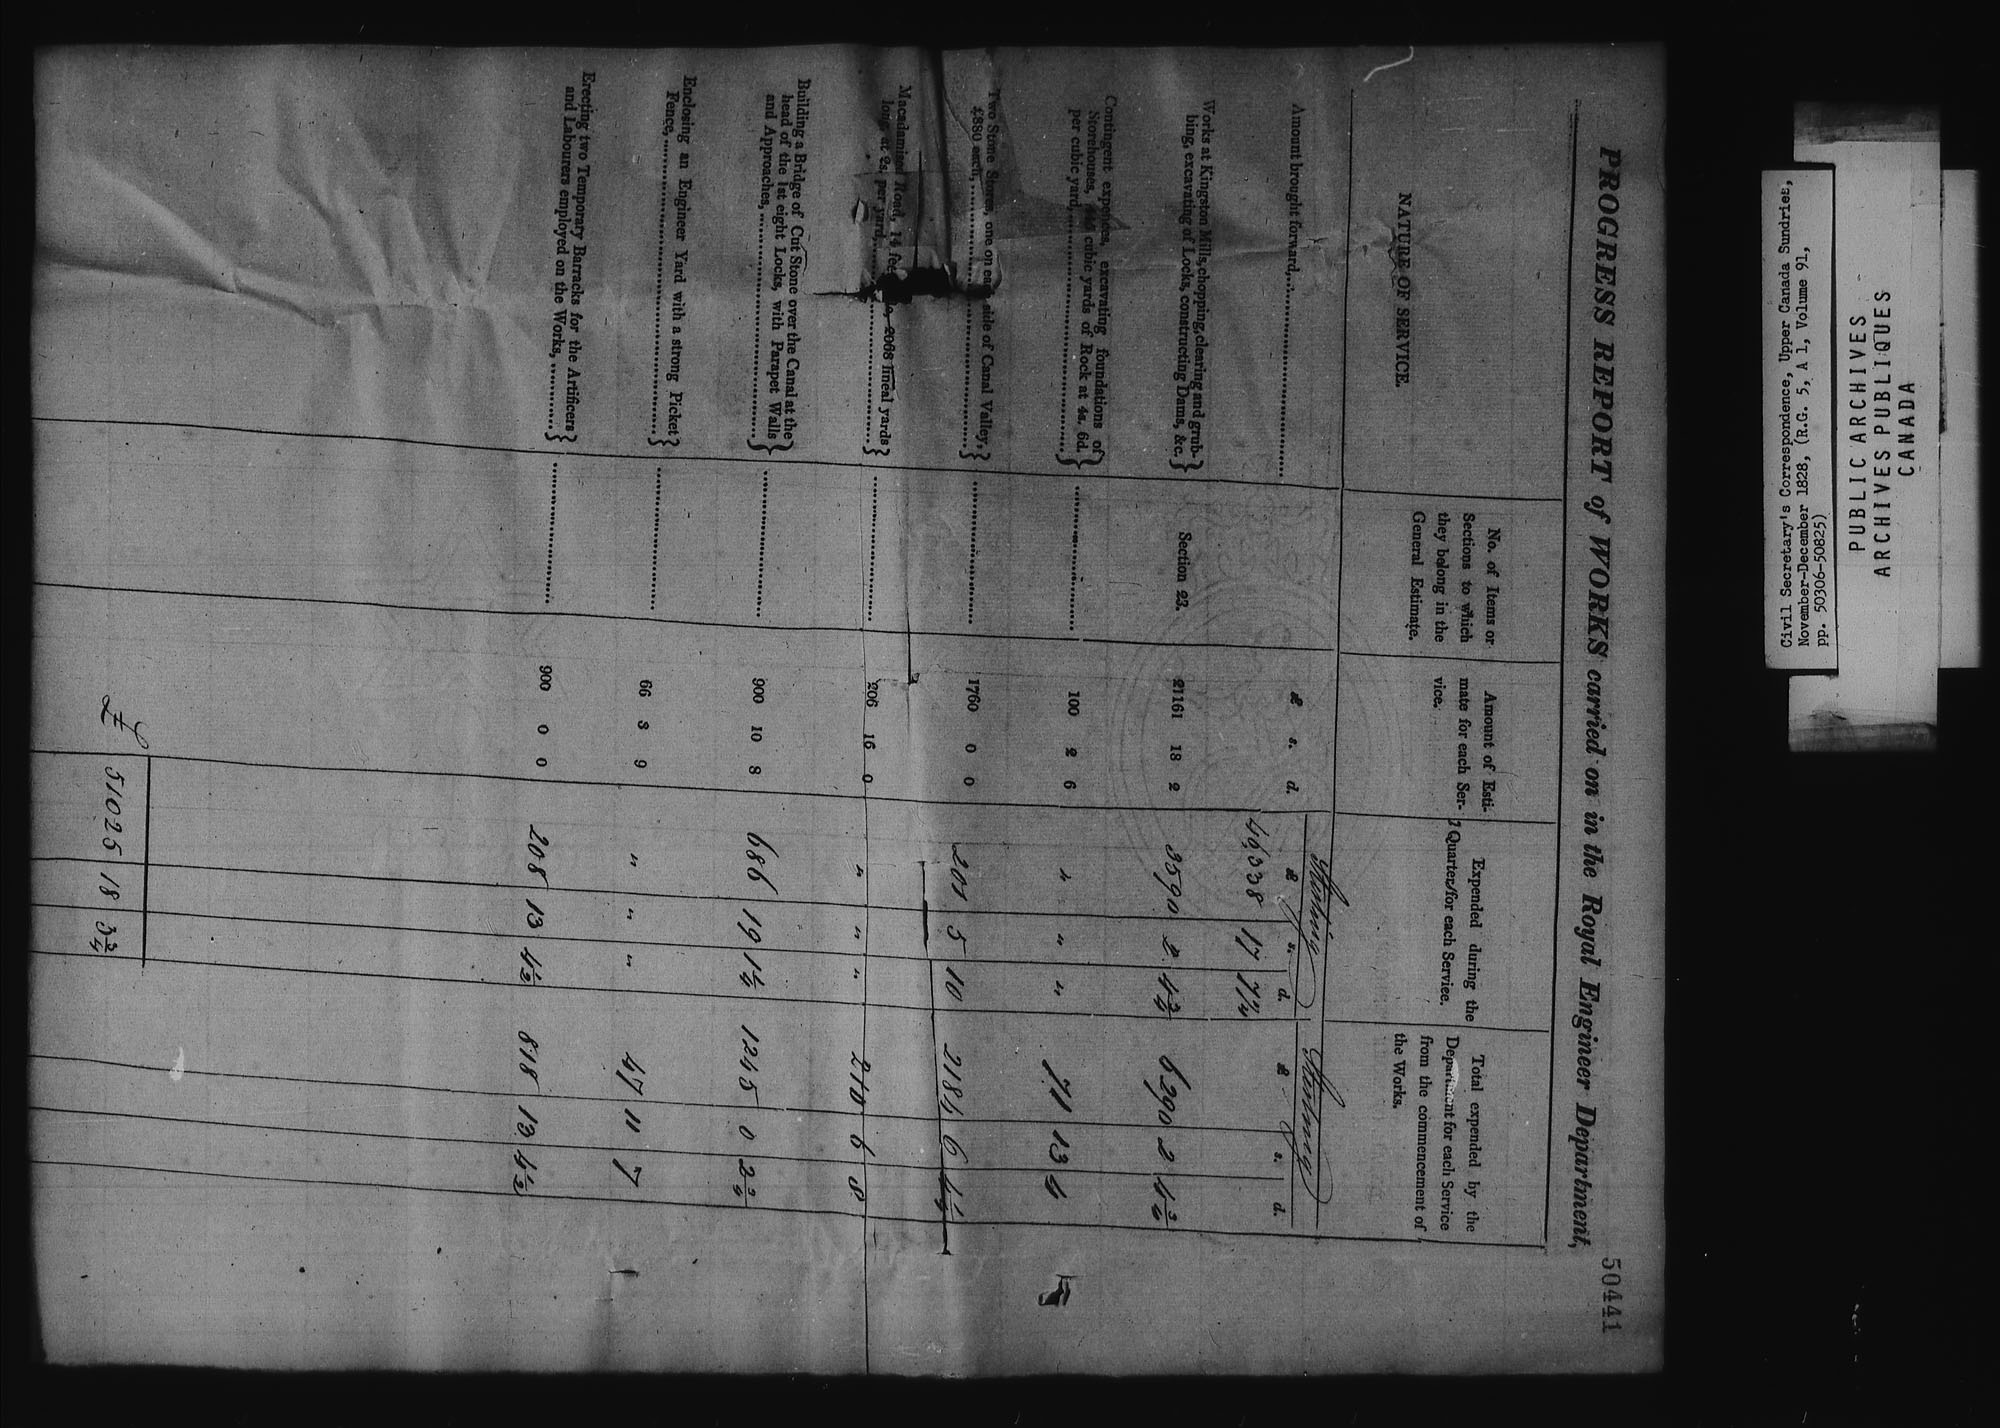 PROGRESS REPORT of WORKS carried on in the Royal Engineer Department,
50441
NATURE OF SERVICE.
No. of Items or
Sections to which
they belong in the
General Estimate.
Amount of Esti-
mate for each Ser-
vice.
Expended during the
Quarter for each Service.
Total expended by the
Department for each Service
from the commencement of
the Works.
Sterling Sterling
£ s. d. £ s. d. £ s. d.
Amount brought forward, 46338 17 7¼
Works at Kingston Mills, chopping, clearing and grub-
bing, excavating of Locks, constructing Dams, &c. } Section 23. 21161 18 2 3590 2 4¾ 6290 2 4¾
Contingent expences, excavating foundations of
Storehouses, cubic yards of Rock at 4s. 6d.
per cubic yard, } 100 2 6 " " " 71 13 4
Two Stone Stores, one on each side of Canal Valley,
£880 each, } 1760 0 0 201 5 10 2184 6
Macadamised Road, 14 feet 2068 lineal yards
long, at 2s. per yard, } 206 16 0 " " " 210 6 8
Building a Bridge of Cut Stone over the Canal at the
head of the 1st eight Locks, with Parapet Walls
and Approaches, } 900 10 8 686 19 1½ 1245 0 2¾
Enclosing an Engineer Yard with a strong Picket
Fence, } 66 3 9 " " " 47 11 7
Erecting two Temporary Barracks for the Artificers
and Labourers employed on the Works, } 900 0 0 208 13 4½ 818 13 4½
£ 51025 18 3¾
Civil Secretary's Correspondence, Upper Canada Sundries,
November-December 1828, (R.G. 5, A 1, Volume 91,
pp. 50306-50825)
PUBLIC ARCHIVES
ARCHIVES PUBLIQUES
CANADA